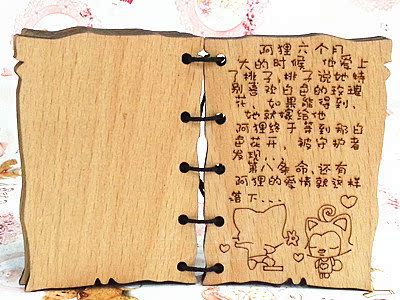 阿狸六个月
大的时候，他爱上
了桃子，桃子说她特
别喜欢白色的玫瑰
花，如果能得到，
她就嫁给他
阿狸终于等到那白
色花开，被守护者
发现...
第八条命，还有
阿狸的爱情就这样
落下...